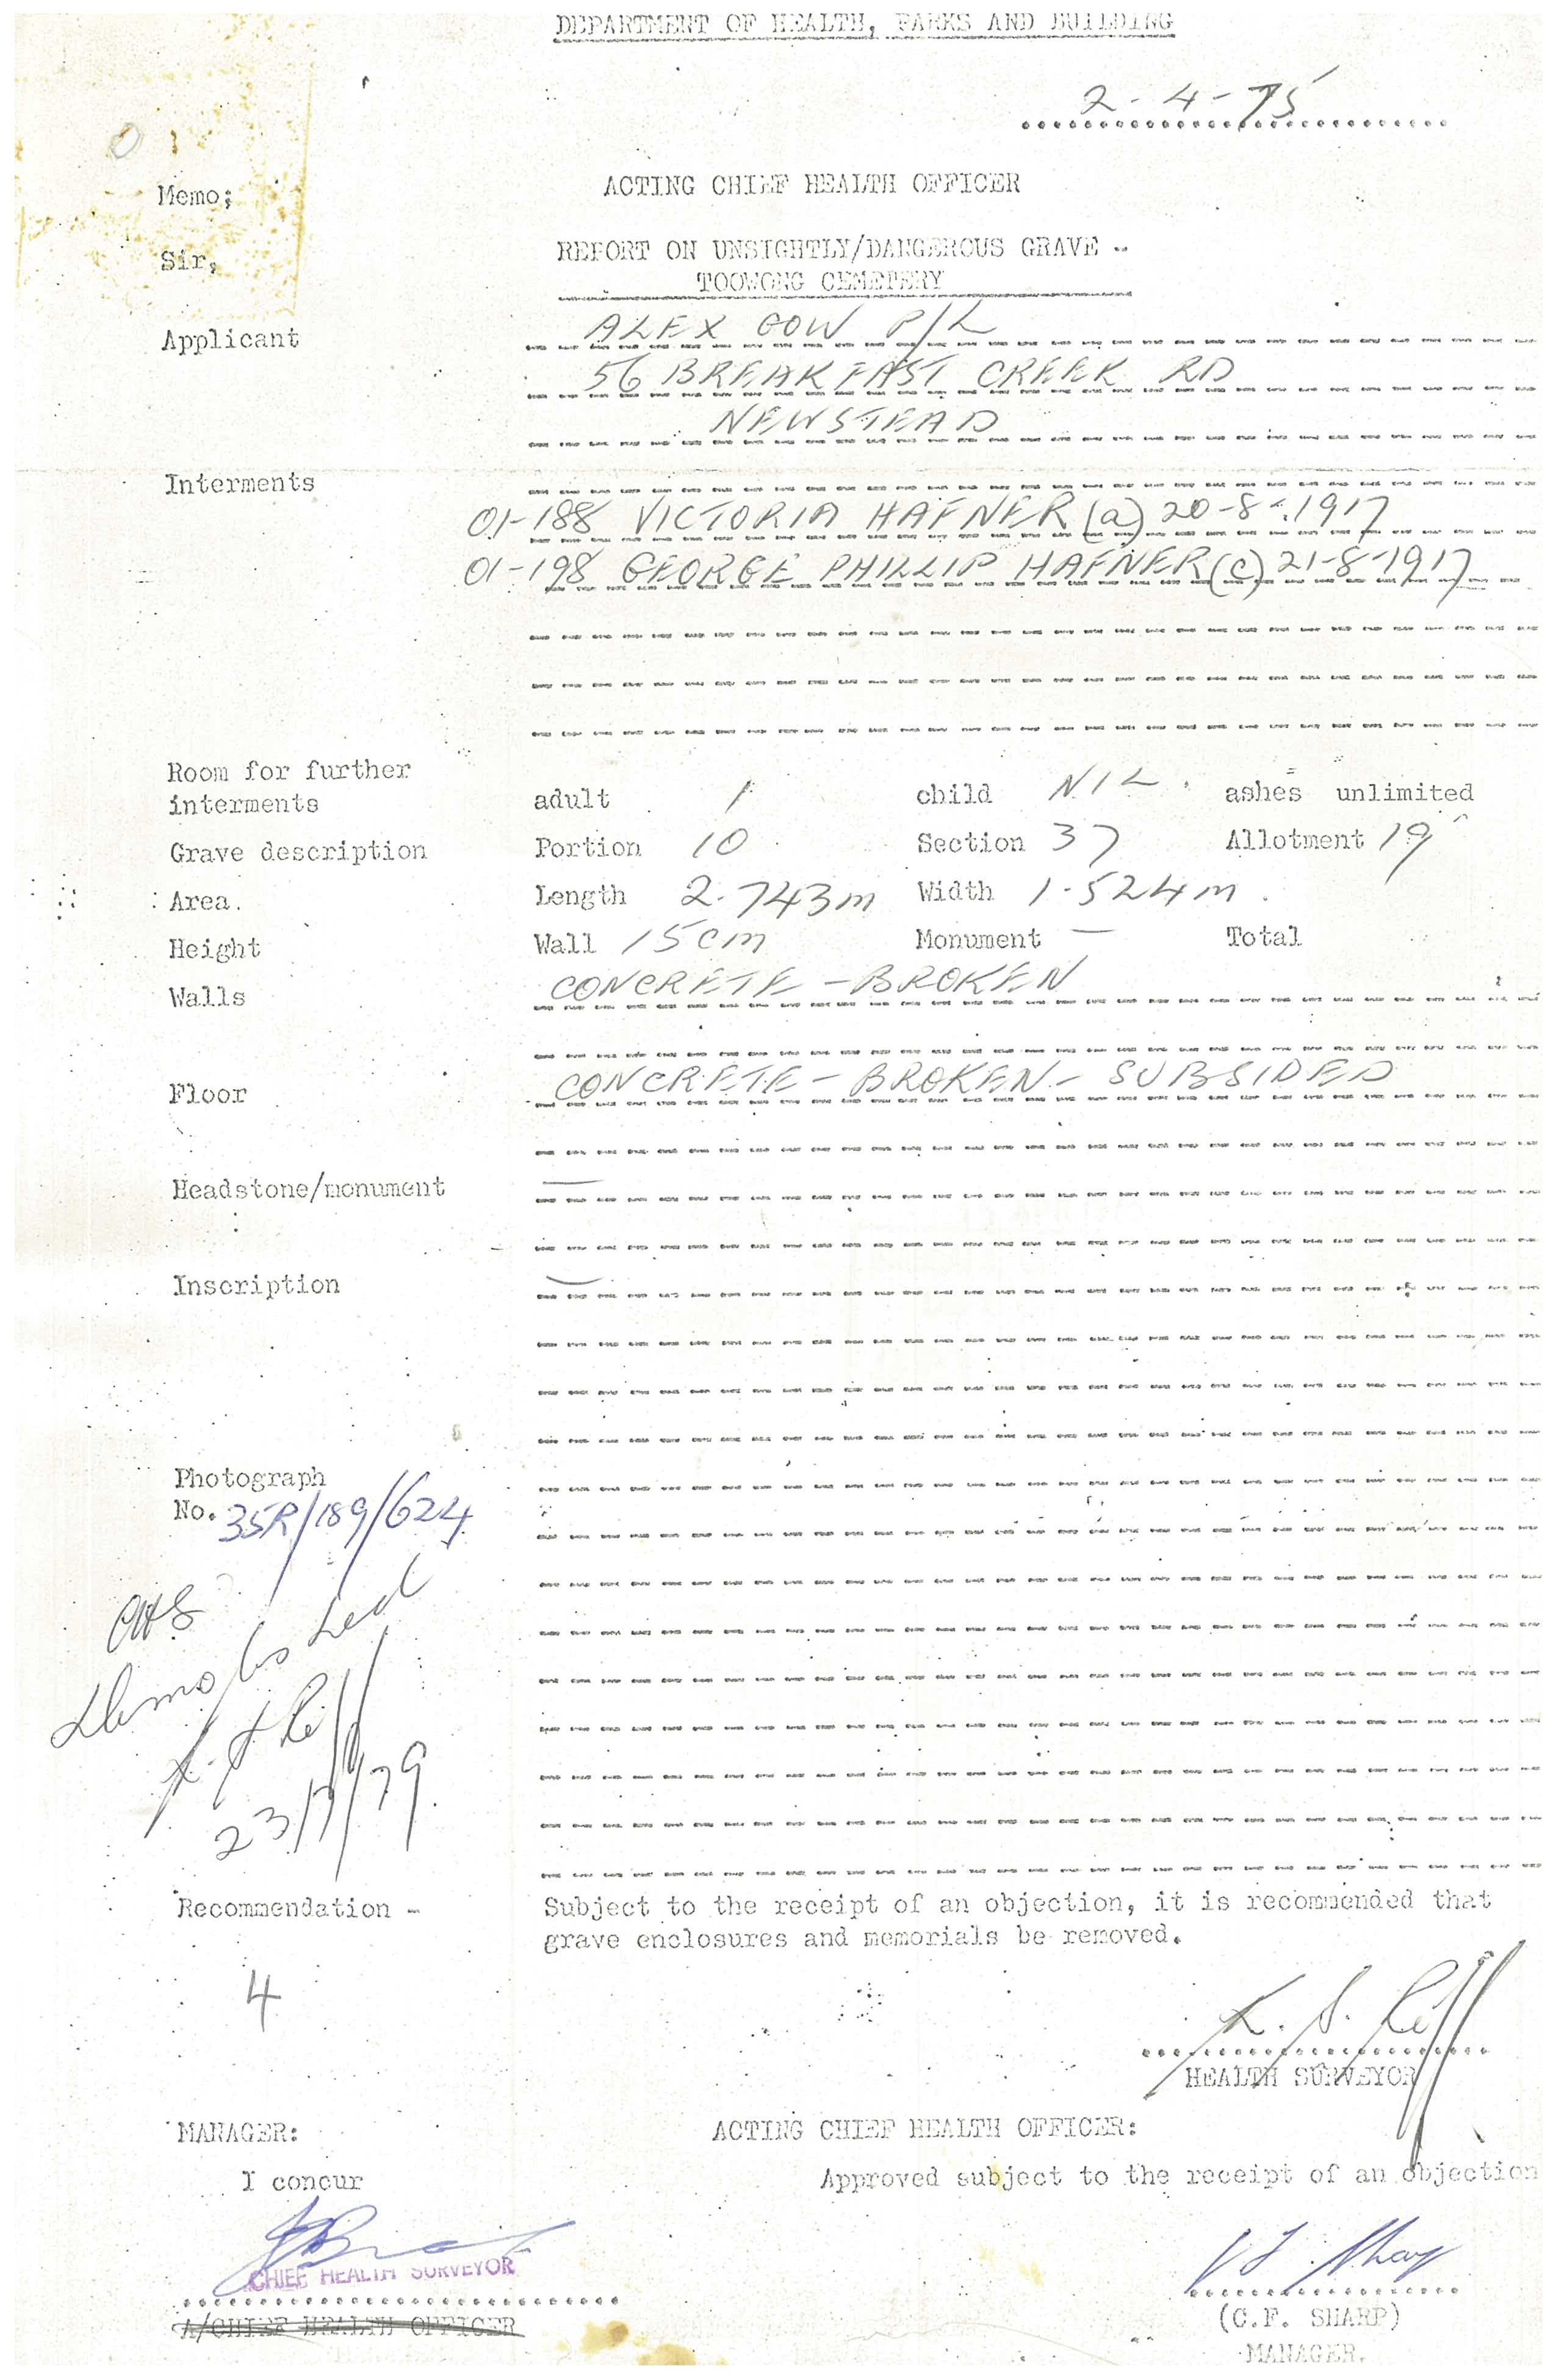 DEPARTMENT OF HEALTH, PARKS AND BUILDING
2-4-75
Memo;
ACTING CHIEF HEALTH OFFICER
Sir,
REPORT ON UNSIGHTLY/DANGEROUS GRAVE -
TOOWONG CEMETERY
Applicant ALEX GOW P/L
56 BREAKFAST CREEK RD
NEWSTEAD
Interments
01-188 VICTORIA HAFNER (a) 20-8-1917
01-198 GEORGE PHILLIP HAFNER (c) 21-8-1917
Room for further
interments adult 1 child NIL. ashes unlimited
Grave description Portion 10 Section 37 Allotment 19
Area. Length 2.743m Width 1.524m.
Height Wall 15cm Monument — Total
Walls CONCRETE - BROKEN
Floor CONCRETE - BROKEN - SUBSIDED
Headstone/monument —
Inscription —
Photograph
No. 35R/189/624
Demolished
23/7/79
Recommendation - Subject to the receipt of an objection, it is recommended that
grave enclosures and memorials be removed.
4
HEALTH SURVEYOR
MANAGER: ACTING CHIEF HEALTH OFFICER:
I concur Approved subject to the receipt of an objection
CHIEF HEALTH SURVEYOR
A/CHIEF HEALTH OFFICER
(C.F. SHARP)
MANAGER.